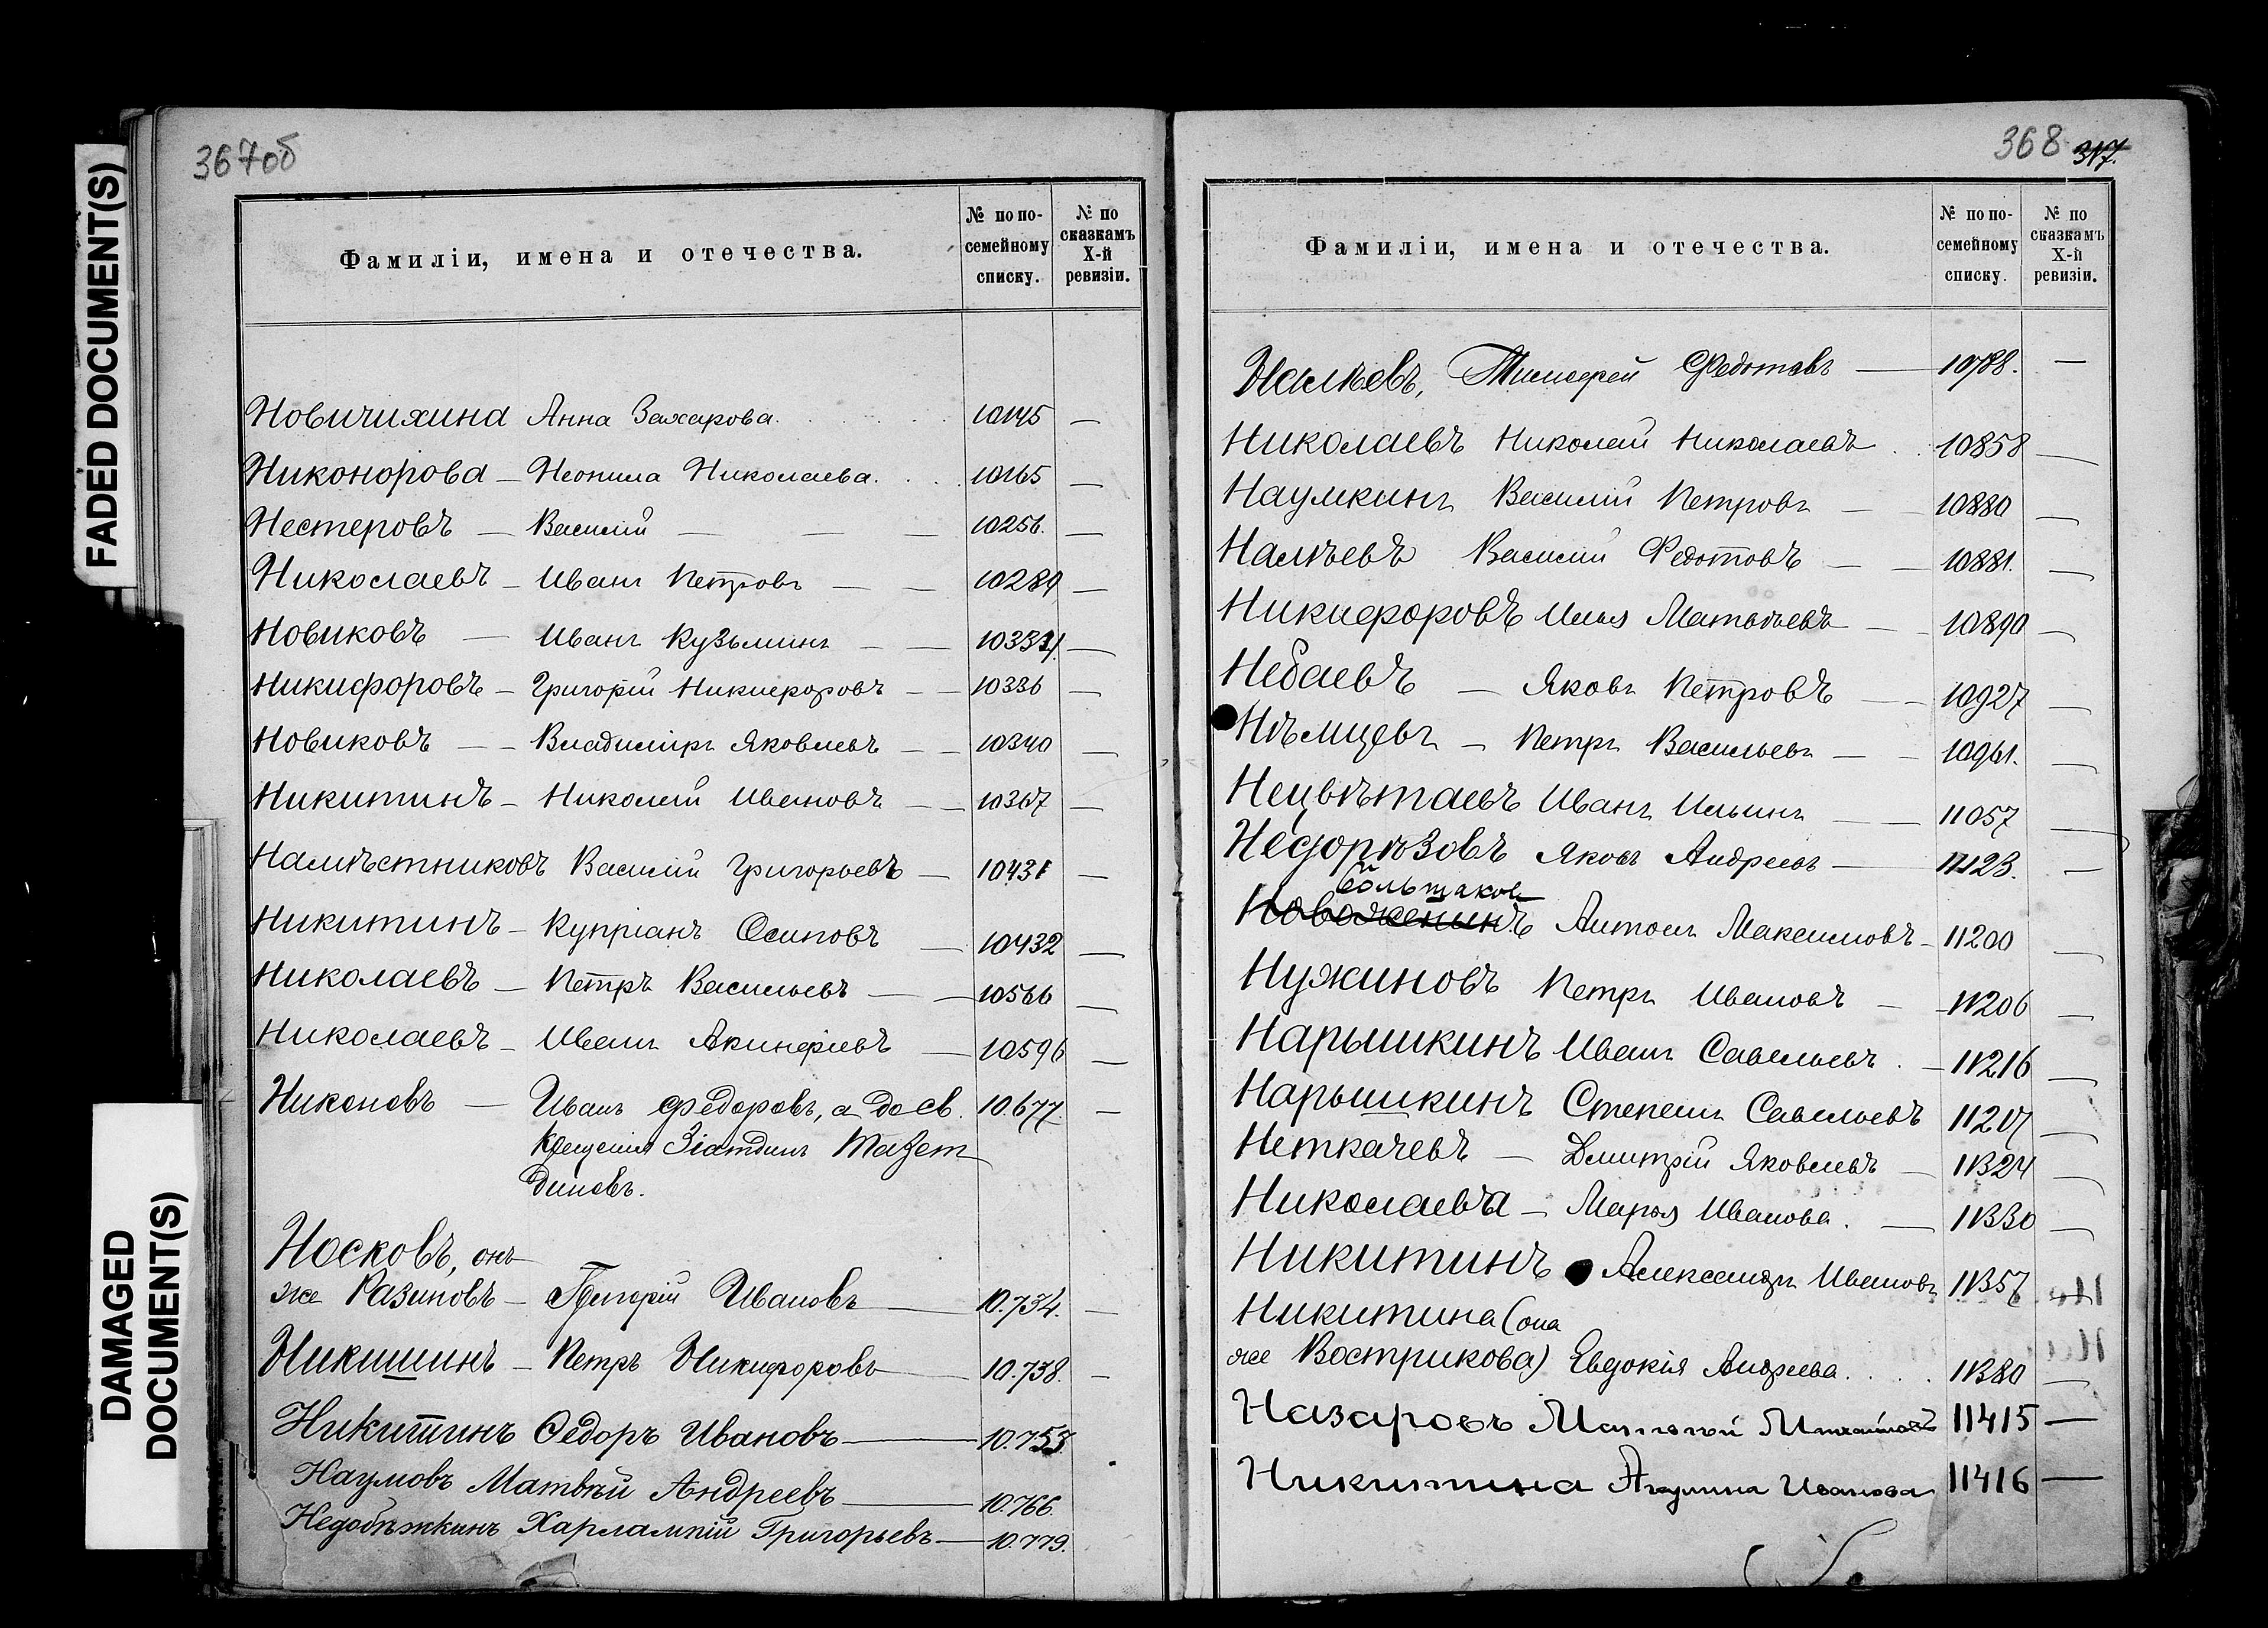 FADED DOCUMENT(S)
DAMAGED
DOCUMENT(S)
367об
Фамиліи, имена и отечества.
№ по по-
семейному
списку.
№ по
сказкамъ
X-й
ревизіи.
Новичихина Анна Захарова. 10145 —
Никонорова — Неонила Николаева. 10165 —
Нестеровъ — Василій — 10256. —
Николаевъ — Иванъ Петровъ — 10289 —
Новиковъ — Иванъ Кузьминъ — —
Никифоровъ — Григорій Никифоровъ — 10336 —
Новиковъ — Владиміръ Яковлевъ — 10340 —
Никитинъ — Николай Ивановъ — 10367 —
Намѣстниковъ Василій Григорьевъ — 10431 —
Никитинъ — Купріанъ Осиповъ — 10432 —
Николаевъ — Петръ Васильевъ — 10566 —
Николаевъ — Иванъ Акинфіевъ — 10596 —
Никоновъ — Иванъ Федоровъ, а до св. 10.677. —
крещенія Зіатдинъ Тазет
диновъ.
Носковъ, онъ
же Разиновъ — Григорій Ивановъ — 10.734. —
Никишинъ — Петръ Никифоровъ — 10.738. —
Никитинъ Ѳедоръ Ивановъ — 10.753.
Наумовъ Матвѣй Андреевъ — 10.766.
Недобѣжкинъ Харлампій Григорьевъ — 10.779.
368 317.
Фамиліи, имена и отечества.
№ по по-
семейному
списку.
№ по
сказкамъ
X-й
ревизіи.
Налѣевъ, Тимофей Федотовъ — 10788. —
Николаевъ Николай Николаевъ 10858 —
Наумкинъ Василій Петровъ — 10880 —
Налѣевъ Василій Федотовъ — 10881. —
Никифоровъ Илья Матвѣевъ — 10890 —
Небаевъ — Яковъ Петровъ — 10927 —
Нѣмцевъ — Петръ Васильевъ — 10961. —
Нецвѣтаевъ Иванъ Ильинъ — 11057 —
Недорѣзовъ Яковъ Андреевъ — 11123. —
Большаковъ
Новоженинъ Антонъ Максимовъ — 11200 —
Нужиновъ Петръ Ивановъ — 11206 —
Нарышкинъ Иванъ Савельевъ. — 11216 —
Нарышкинъ Степанъ Савельевъ 11217 —
Неткачевъ — Дмитрій Яковлевъ — 11324 —
Николаева — Марья Иванова. — 11330 —
Никитинъ Александръ Ивановъ 11357 —
Никитина (она
же Вострикова) Евдокія Андреева. 11380 —
Назаровъ Матвѣй Михайловъ 11415 —
Никитина Акулина Иванова 11416 —